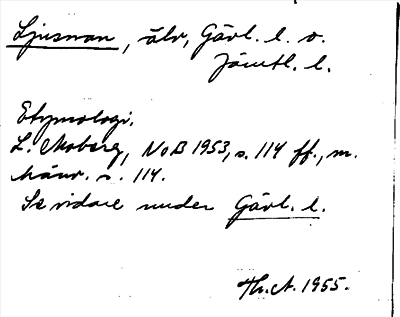 Ljusnan, älv, Gävl. l. o.
Jämtl. l.
Etymologi.
L. Moberg, NoB 1953, s. 114 ff., m.
hänv. s. 114.
Se vidare under Gävl. l.
Th. A. 1955.